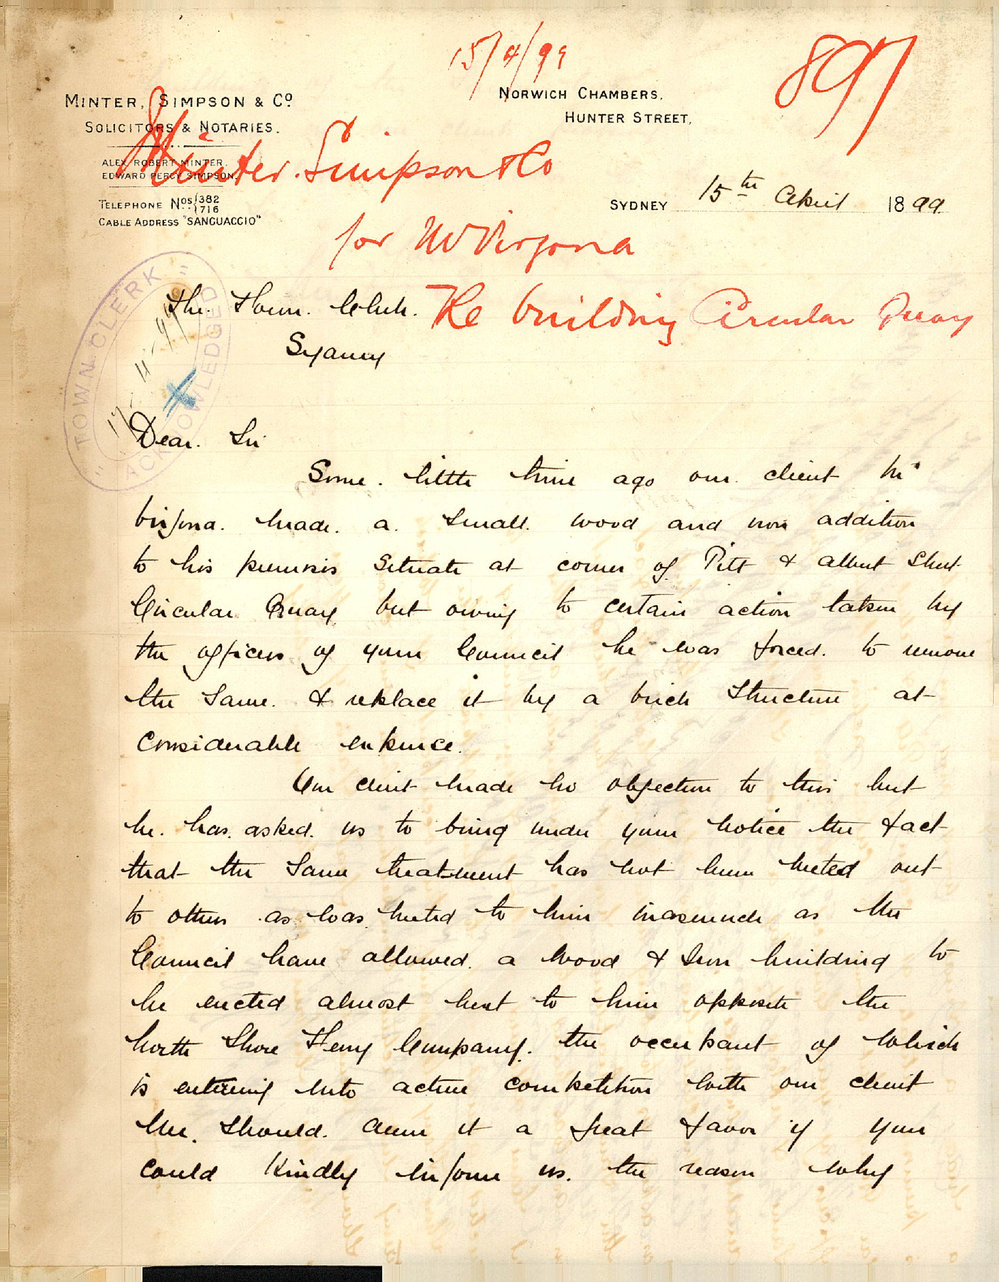 15/4/99
897
MINTER, SIMPSON & Co
SOLICITORS & NOTARIES.
ALEX. ROBERT MINTER.
EDWARD PERCY SIMPSON.
TELEPHONE Nos 1382
1716
CABLE ADDRESS "SANGUACCIO"
NORWICH CHAMBERS.
HUNTER STREET,
Minter. Simpson & Co
SYDNEY 15th April 1899.
for Mr Virgona
The Town Clerk.
Re building Circular Quay
Sydney
"TOWN CLERK"
ACKNOWLEDGED
Dear. Sir
Some. little time ago our. client Mr
Virgona. made. a. small. wood and iron addition
to his premises situate at corner of Pitt & Albert Street
Circular Quay but owing to certain action taken by
the officers of your Council he was forced. to remove
the same. & replace it by a brick structure at
considerable expense.
Our client made no objection to this but
he. has. asked. us to bring under your notice the fact
that the same treatment has not been meted out
to others as was meted to him inasmuch as the
Council have allowed. a wood & Iron building to
be erected almost next to him opposite the
North Shore Ferry Company. the occupant of which
is entering into active competition with our client
We. should. deem it a great favor if you
could kindly inform us. the reason why